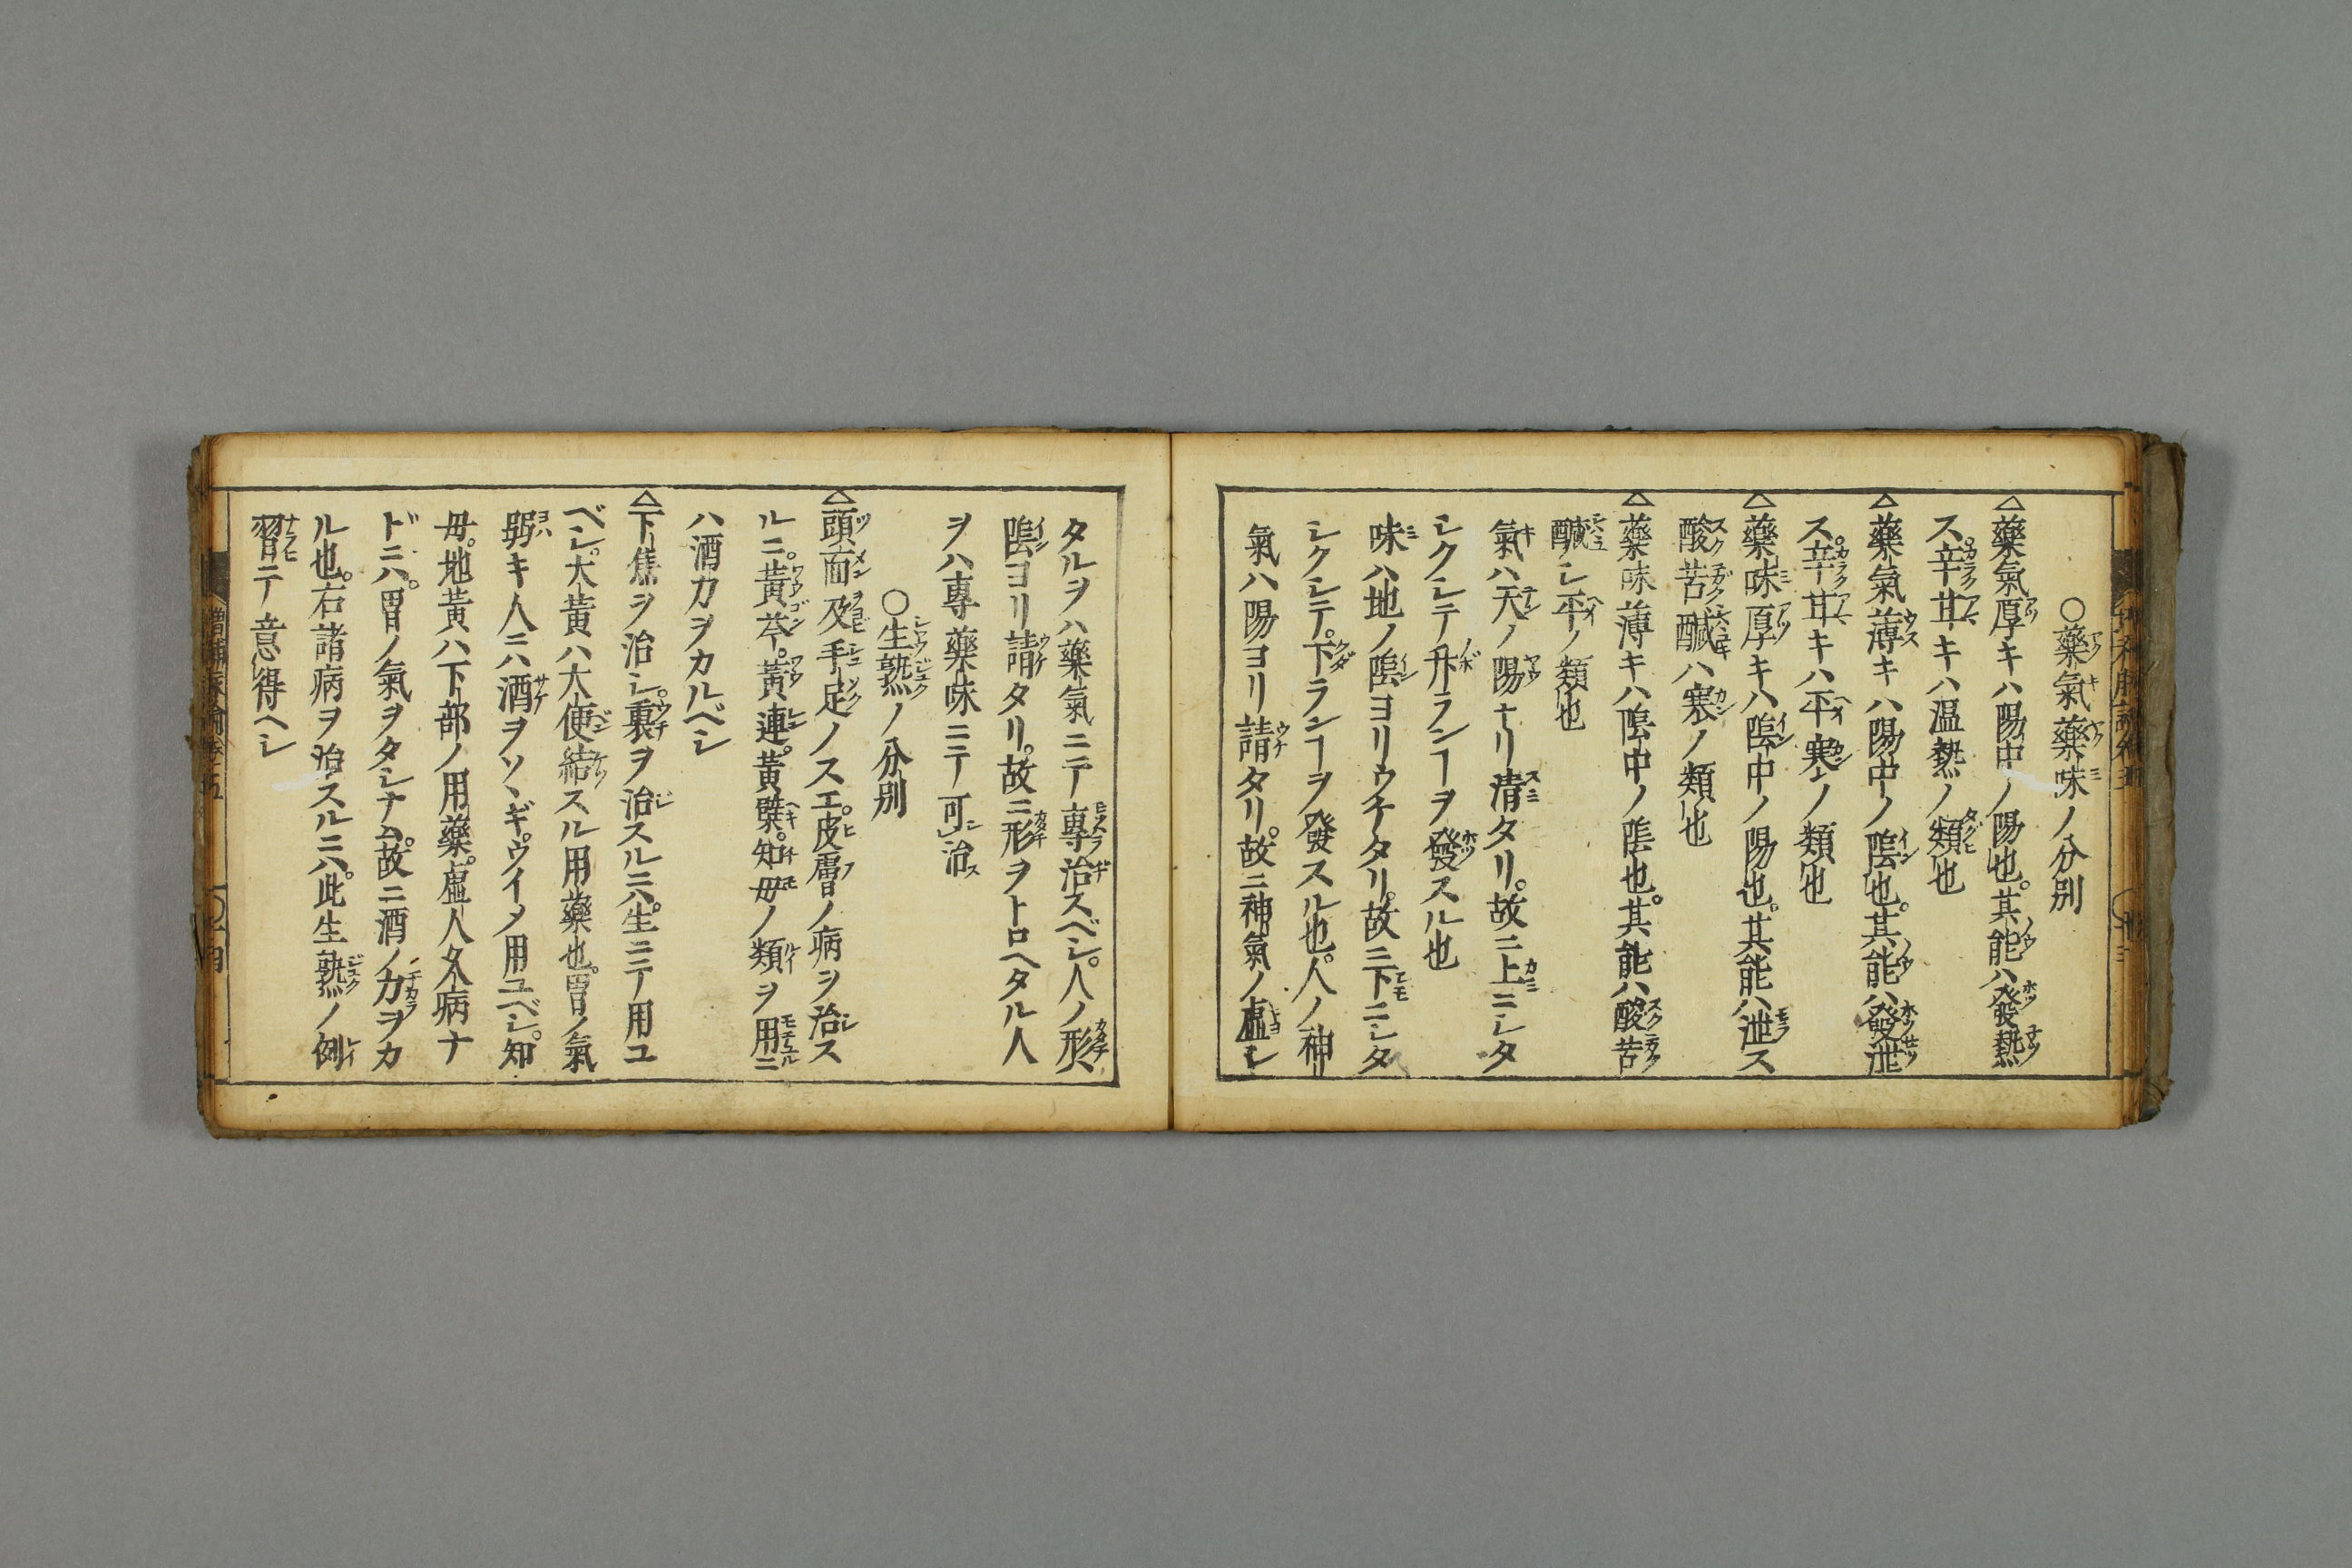 〇藥氣藥味ノ分別
△藥氣厚キハ陽中ノ陽也。其能ハ發熱
ス。辛甘キハ温熱ノ類也
△藥氣薄キハ陽中ノ陰也。其能ハ發泄
ス。辛甘キハ平寒ノ類也
△藥味厚キハ陰中ノ陽也。其能ハ泄ス
酸苦醎ハ寒ノ類也
△藥味薄キハ陰中ノ陰也。其能ハ酸苦
醎シ平ノ類也
氣ハ天ノ陽ナリ清タリ。故ニ上ニシタ
シクシテ升ランヿヲ發スル也
味ハ地ノ陰ヨリウケタリ。故ニ下ニシタ
シクシテ。下ランヿヲ發スル也。人ノ神
氣ハ陽ヨリ請タリ。故ニ神氣ノ虛シ
タルヲハ藥氣ニテ專治スベシ。人ノ形ハ
陰ヨリ請タリ。故ニ形ヲトロヘタル人
ヲハ專藥味ニテ可治
〇生熟ノ分別
△頭面及手足ノスエ。皮膚ノ病ヲ治ス
ルニ。黃芩。黃連。黃檗。知母ノ類ヲ用ニ
ハ酒カヲカルベシ
△下焦ヲ治シ。裏ヲ治スルニハ。生ニテ用ユ
ベシ。大黃ハ大便結スル用藥也。胃ノ氣
弱キ人ニハ酒ヲソヽギ。ウイメ用ユベシ。知
母。地黃ハ下部ノ用藥。虛人久病ナ
ドニハ。胃ノ氣ヲタシナム。故ニ酒ノ力ヲカ
ル也。右諸病ヲ治スルニハ。此生熟ノ例
習テ意得ヘシ